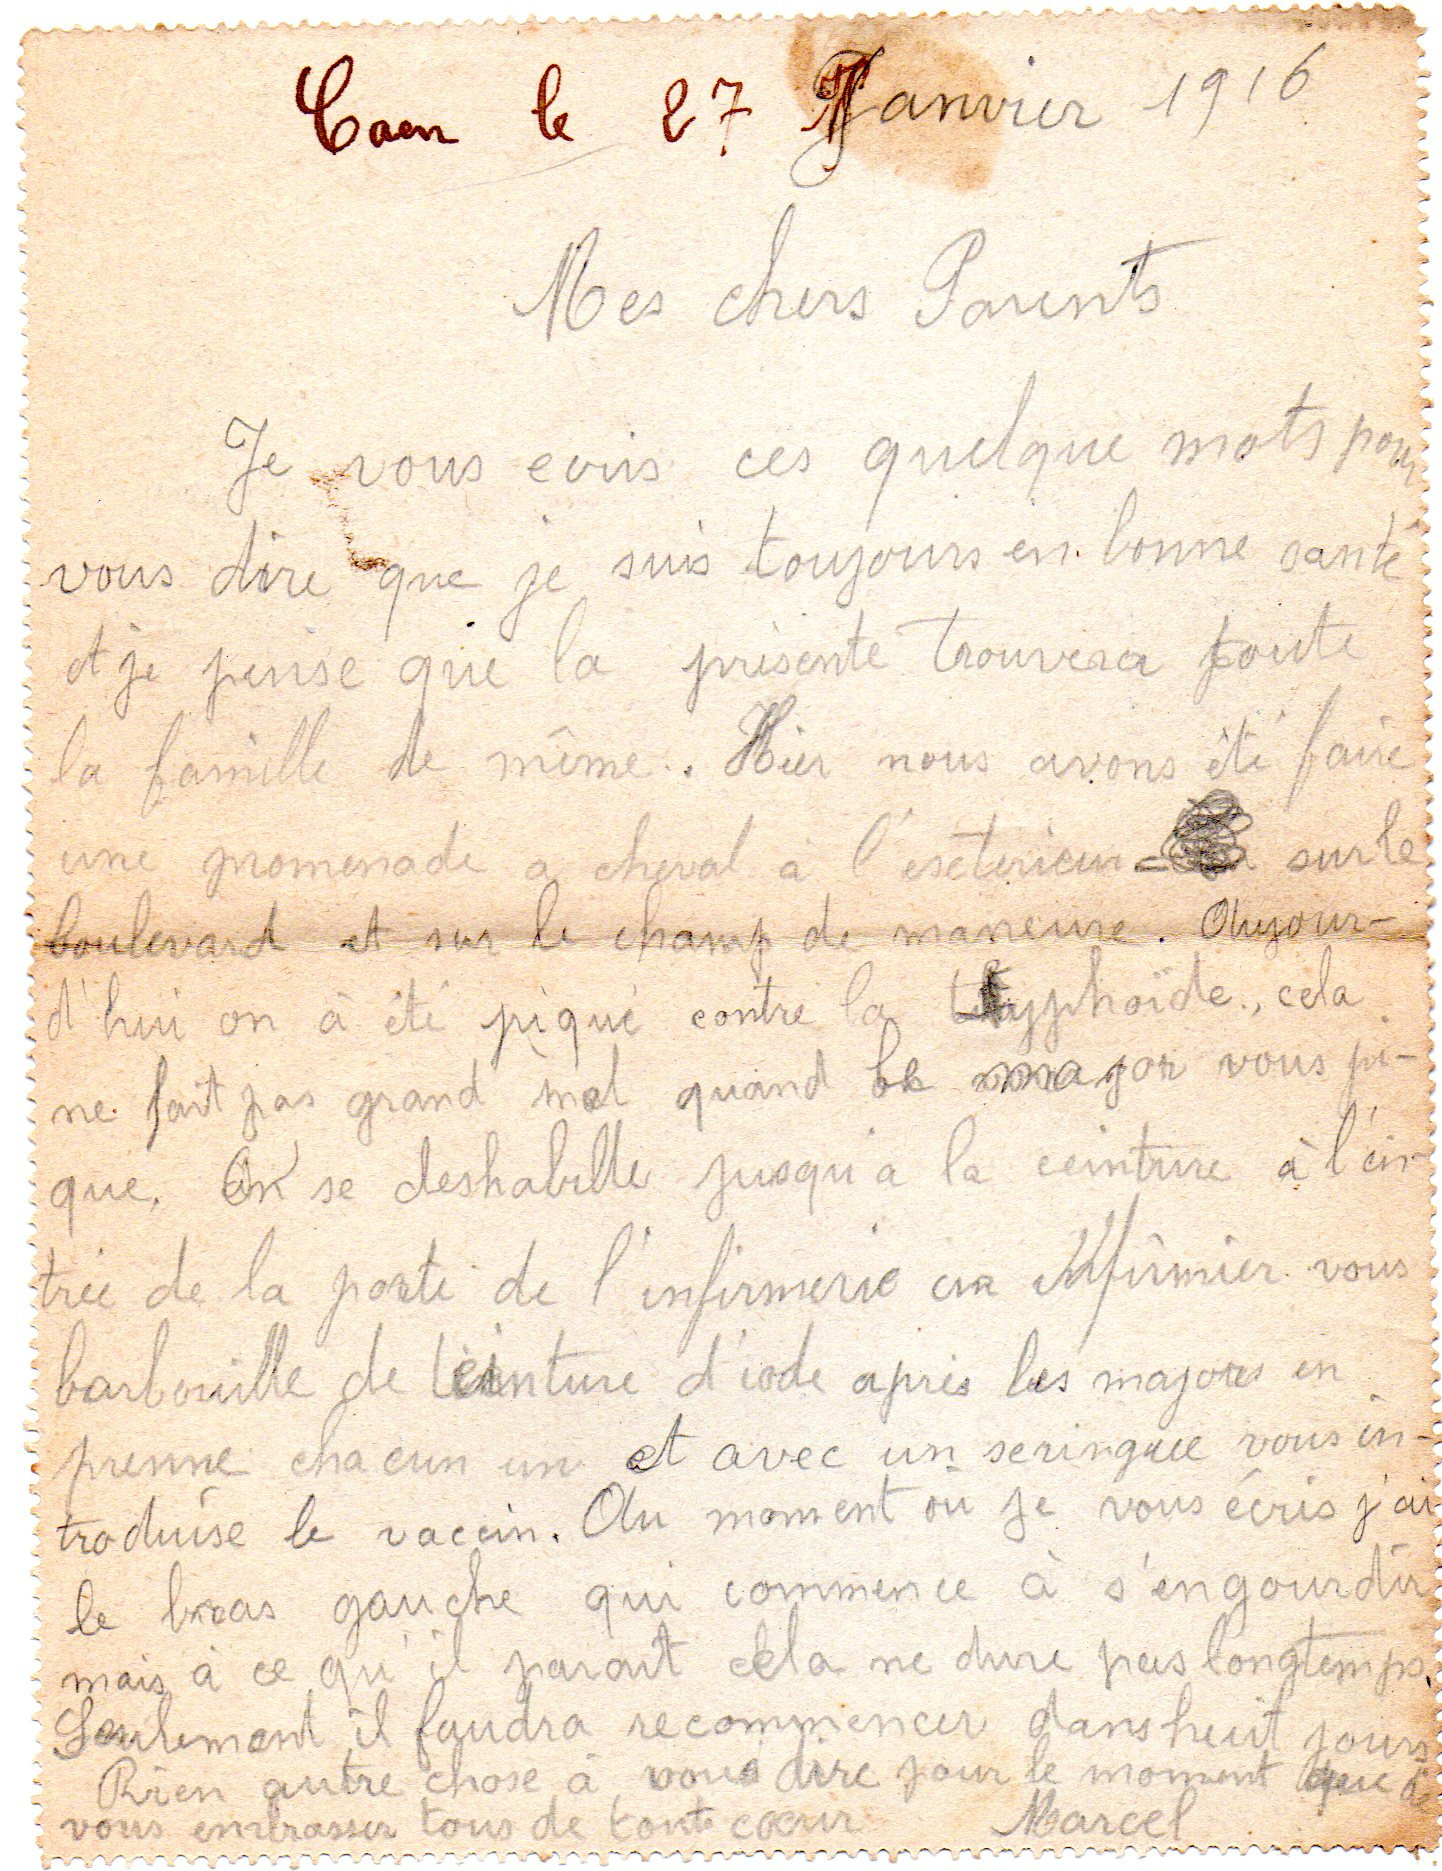 Caen le 27 Janvier 1916
Mes chers Parents
Je vous ecris ces quelque mots pour
vous dire que je suis toujours en bonne santé
et je pense que la présente trouvera toute
la famille de même. Hier nous avons été faire
une promenade a cheval à l'exterieur sur le
boulevard et sur le champ de maneuvre. Aujour-
d'hui on à été piqué contre la typhoïde, cela
ne fait pas grand mal quand le major vous pi-
que. On se deshabille jusqu'a la ceinture à l'en-
trée de la porte de l'infirmerie un infirmier vous
barbouille de teinture d'iode après les majors en
prenne chacun un et avec un seringue vous in-
troduise le vaccin. Au moment où je vous écris j'ai
le bras gauche qui commence à s'engourdir
mais à ce qu'il parait cela ne dure pas longtemps.
Seulement il faudra recommencer dans huit jours
Rien autre chose à vous dire pour le moment que de
vous embrasser tous de tout cœur Marcel